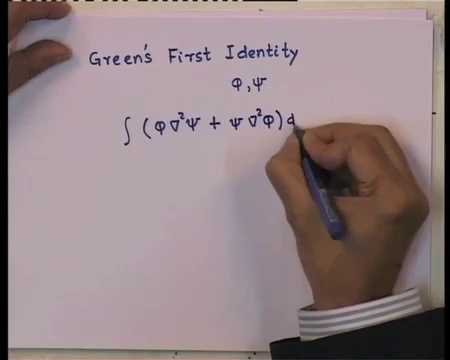 Green's First Identity
φ, ψ
∫ (φ ∇²ψ + ψ ∇²φ) d